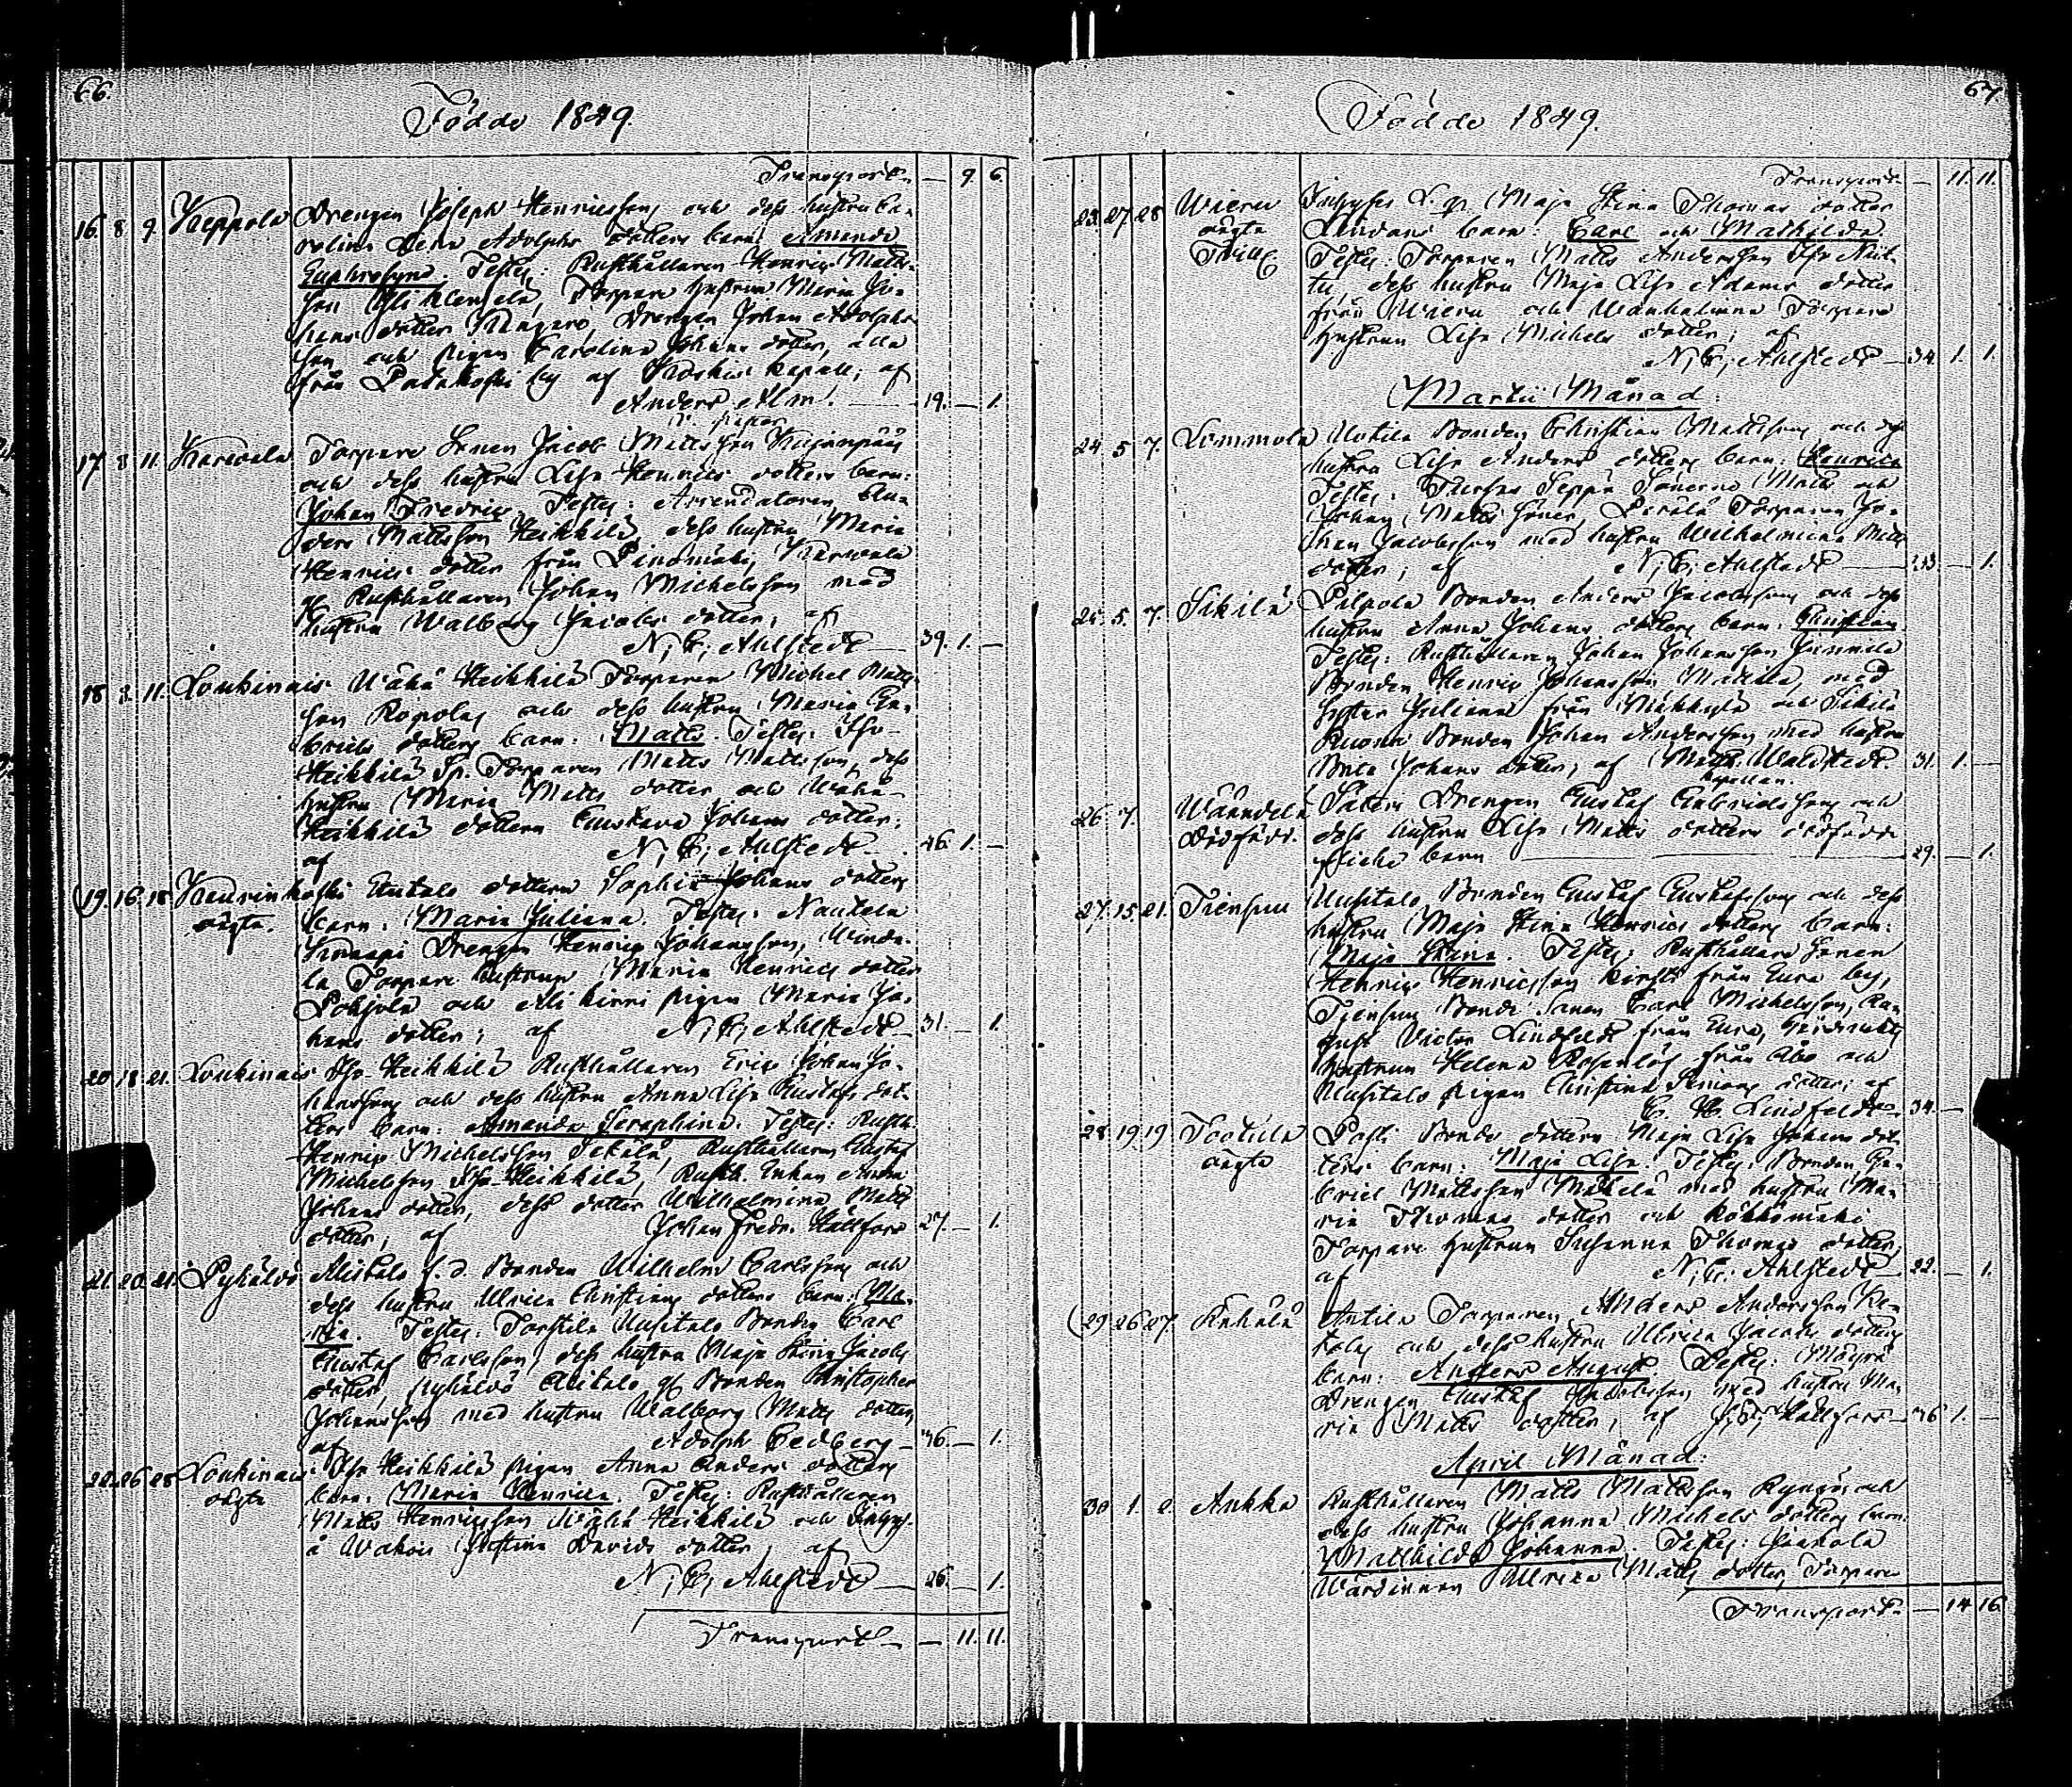 66.
Födde 1849.
Transport — 9 6.
16. 8. 9. Keppola Drengen Joseph Henricsson och dess hustru Ca-
rolina Lena Adolphs dotters barn: Amanda
Euphrosyne. Testes: Rusthållaren Henric Matts-
son Yli Torpare hustrun Maria Jo-
hans dotter Drengen Johan Adolphs-
son och pigan Carolina Johans dotter, alla
från by af kapell; af
Anders Alm. — 19. — 1.
17. 8. 11. Karwala Torpare Sonen Jacob Mattsson
och dess hustru Lisa Henrics dotters barn:
Johan Fredric. Testes: Arrendatoren An-
ders Mattsson Heikkilä, dess hustru Maria
Henrics dotter från Karwala
Rusthållaren Johan Michelsson med
hustru Walborg Jacobs dotter; af
N. C. Ahlstedt — 39. 1. —
18. 8. 11. Loukinais Wähä Heikkilä Torparen Michel Matts-
son och dess hustru Maria Ga-
briels dotters barn: Matts. Testes: Iso-
Heikkilä Sp. Torparen Matts Mattsson, dess
hustru Maria Matts dotter och Wähä-
Heikkilä dottern Gustava Johans dotter;
af N. C. Ahlstedt — 46. 1. —
19. 16. 18. Kaurinkoski dottern Sophia Johans dotters
oägta. barn: Maria Juliana. Testes: Nautela
Drengen Henric Johansson,
la Torpare hustrun Maria Henrics dotter
Pohjola och Ali kirri pigan Maria Jo-
hans dotter; af N. C. Ahlstedt — 31. — 1.
20. 18. 21. Loukinais Iso-Heikkilä Rusthållaren Eric Johan Jo-
hansson och dess hustru Anna Lisa Gustafs dot-
ters barn: Amanda Seraphina. Testes: Rusth.
Henric Michelsson Rusthållaren Gustaf
Michelsson Iso-Heikkilä, Rusth. Enkan Anna
Johans dotter, dess dotter Wilhelmina Matts
dotter; af Johan Fredr. Hällfors 27. — 1.
21. 20. 21. Pyhäloo f. d. Bonden Wilhelm Carlsson och
dess hustru Ulrica Christians dotters barn: Ma-
ria. Testes: Tortila Uusitalo Bonden Carl
Gustaf Carlsson, dess hustru Maja Stina Jacobs
dotter, Bonden Christopher
Johansson med hustru Walborg Matts dotter,
af Adolph Cedberg — 36. — 1.
22. 26. 28. Loukinais Iso Heikkilä pigan Anna Anders dotters
oägta barn: Maria Henrica. Testes: Rusthållaren
Matts Henricsson Heikkilä och Inhys-
Justina Davids dotter; af
N. C. Ahlstedt — 26. — 1.
Transport — 11. 11.
67
Födde 1849.
Transport — 11. 11.
23. 27. 28 Wieru Inhyses Maja Stina Thomas dotter
oägta Lindans barn: Carl och Mathilda
Twill. Testes: Torparen Matts Andersson Iso
dess hustru Maja Lisa Adams dotter
från Wieru och Torpare
hustrun Lisa Michels dotter; af
N. C. Ahlstedt — 34. 1. 1.
Martii Månad.
24. 5. 7. Lemmola Uotila Bonden Christian Mattsson och dess
hustru Lisa Anders dotters barn: Henrica
Testes: Seppä Sönerne Matts och
Johan Matts söner, Torparen Jo-
han Jacobsson med hustru Wilhelmina Matts
dotter; af N. C. Ahlstedt — 33. — 1.
25. 5. 7. Sikilä Pilpola Bonden Anders Jacobsson och dess
hustru Anna Johans dotters barn: Christian
Testes: Rusthållaren Johan Johansson Junnila
Bonden Henric Johansson med
syster Juliana från och Sikilä
Bonden Johan Andersson med hustru
Brita Johans dotter; af Math. Waldstedt. 31. 1. —
kapellan.
26. 7. Wäänelä Säteri Drengen Gustaf Gabrielsson och
dödfödt. dess hustru Lisa Matts dotters dödfödde
flicke barn — 29. — 1.
27. 15. 21. Tiensuu Uusitalo Bonden Gustaf Gustafsson och dess
hustru Maja Stina Henrics dotters barn:
Maja Stina. Testes: Rusthållare Sonen
Henric Henricsson från Eura by,
Tiensuu Bonde Sonen Carl Michelsson,
Victor Lindfeldt från Eura,
hustrun Helena Rosenlöf från Åbo och
Uusitalo pigan Christina Simons dotter; af
C. H. Lindfeldt 34. —
28. 19. 19 Tortila Posti Bonde dottern Maja Lisa Johans dot-
oägta ters barn: Maja Lisa. Testes: Bonden Ga-
briel Mattsson Mäkelä med hustru Ma-
ria Thomas dotter och
Torpare hustrun Susanna Thomas dotter,
af N. C. Ahlstedt — 22. — 1.
29. 26. 27. Kahala Antila Torparen Anders Andersson
och dess hustru Ulrica Jacobs dotters
barn: Anders August. Testes: Mäyrä
Drengen Gustaf Jacobsson med hustru Ma-
ria Matts dotter, af J. F. Hällfors — 36 1. —
April Månad.
30. 1. 2. Ankka Rusthållaren Matts Mattsson och
dess hustru Johanna Michels dotters barn:
Mathilda Johanna. Testes: Jaakola
Wärdinnan Ulrica Matts dotter, Torpare
Transport. — 14 16.